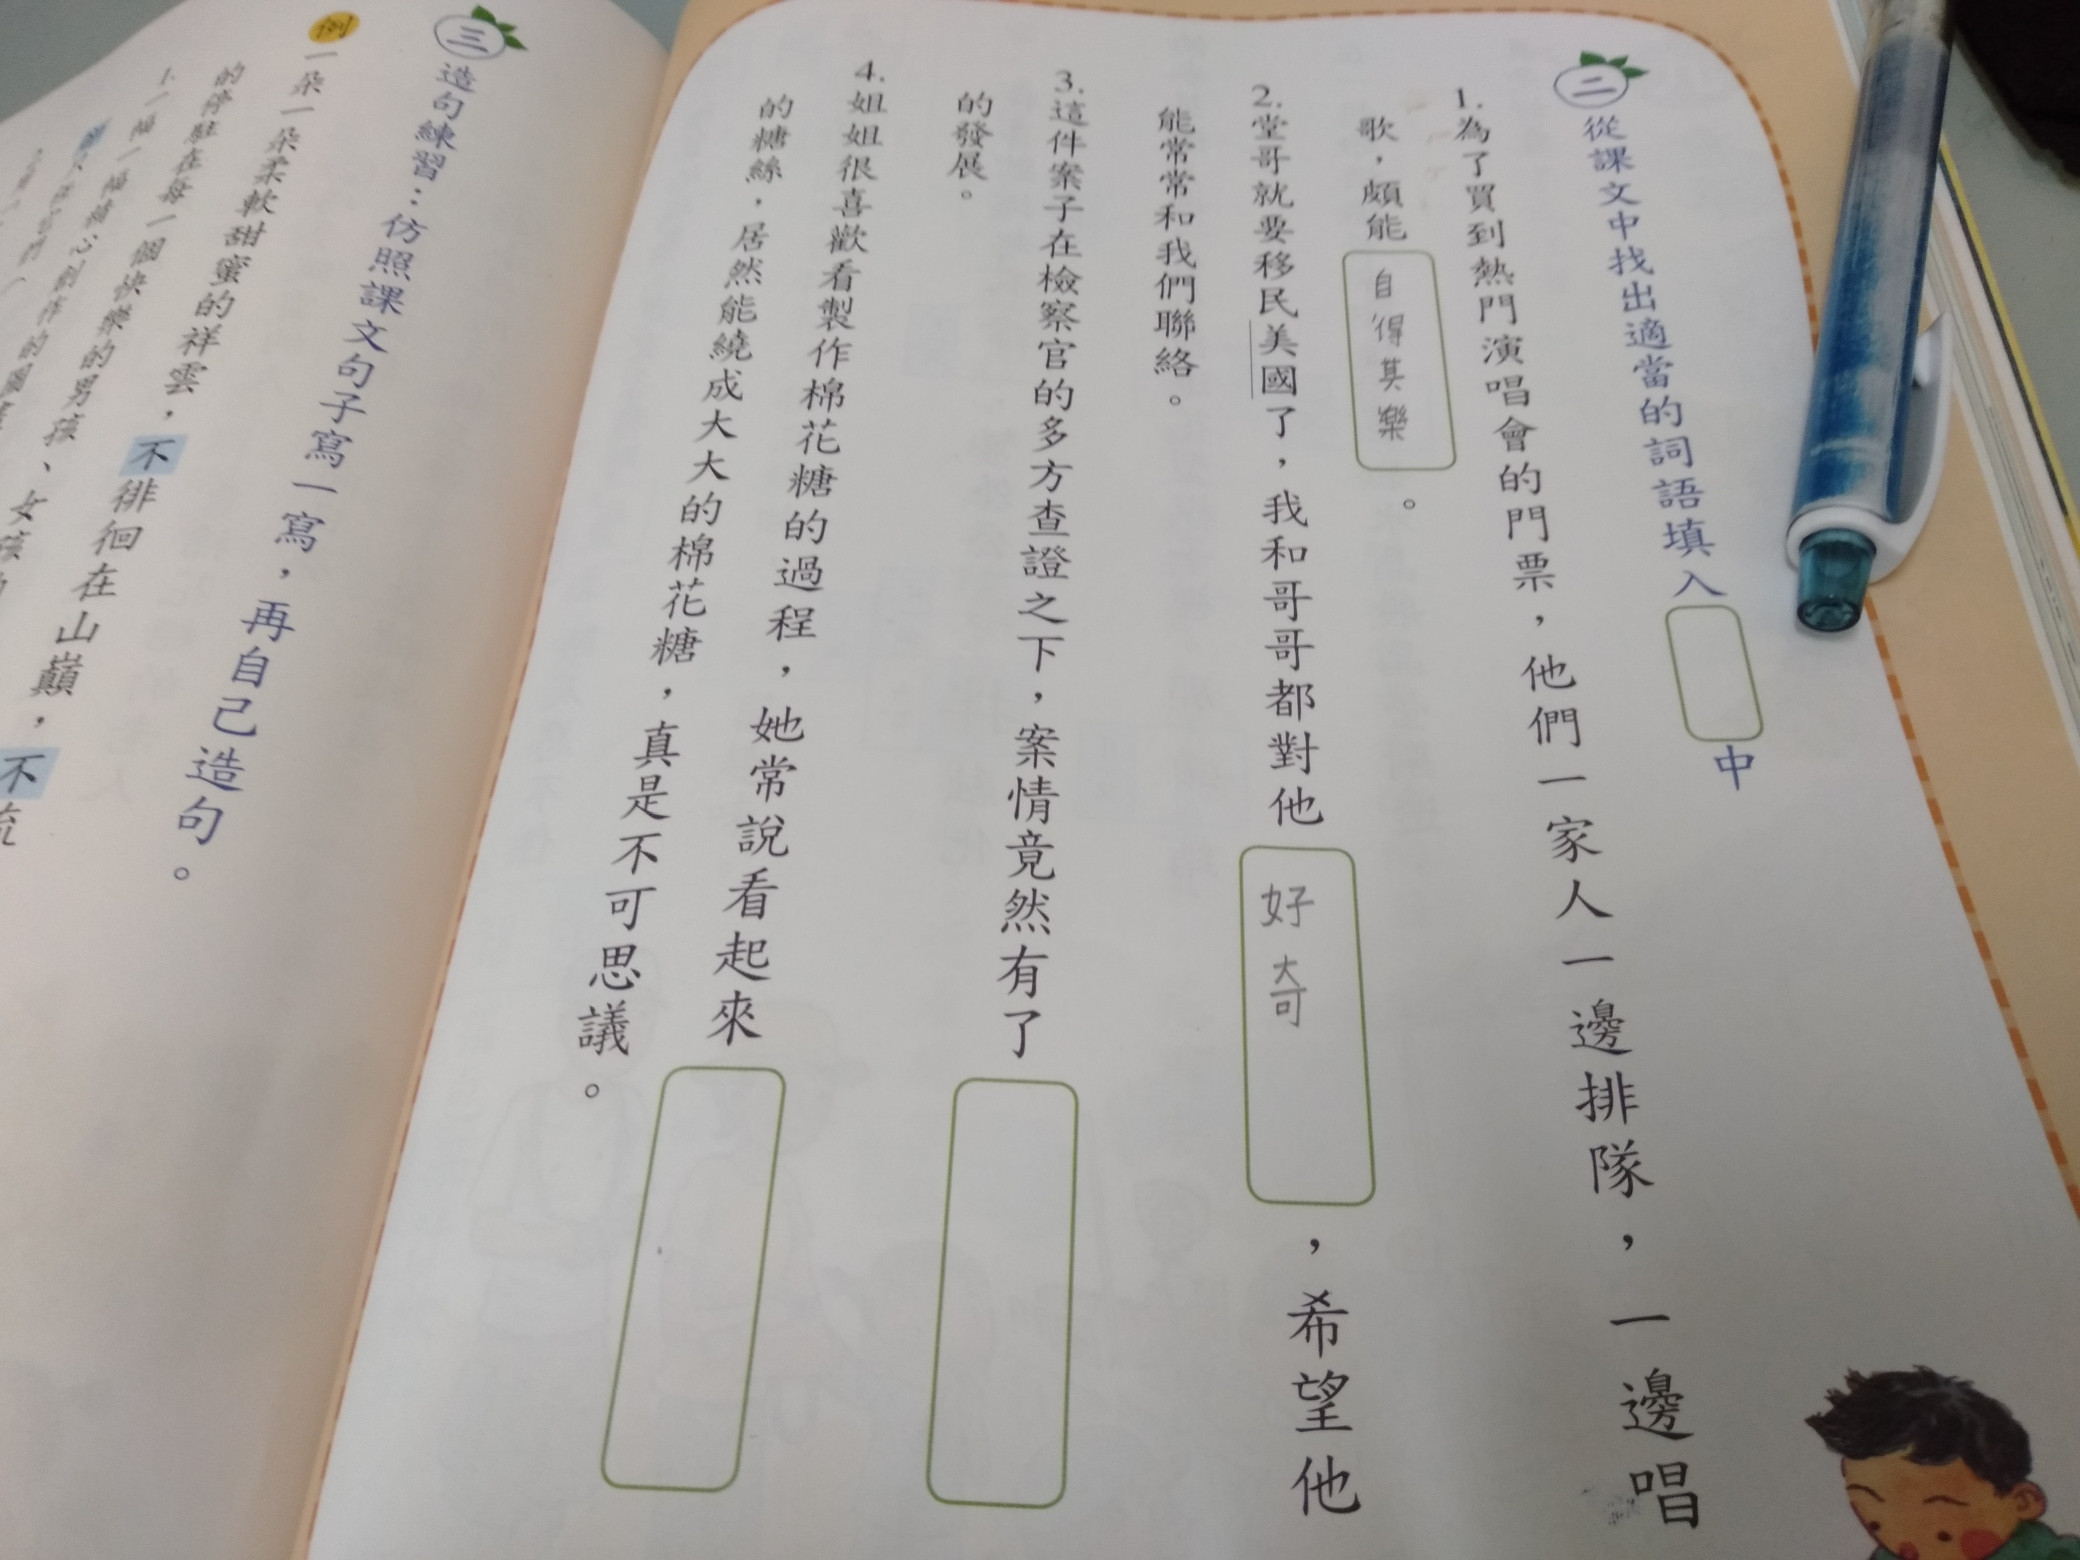 二 從課文中找出適當的詞語填入 中
1.為了買到熱門演唱會的門票，他們一家人一邊排隊，一邊唱
歌，頗能自得其樂。
2.堂哥就要移民美國了，我和哥哥都對他好奇，希望他
能常常和我們聯絡。
3.這件案子在檢察官的多方查證之下，案情竟然有了
的發展。
4.姐姐很喜歡看製作棉花糖的過程，她常說看起來
的糖絲，居然能繞成大大的棉花糖，真是不可思議。
三 造句練習：仿照課文句子寫一寫，再自己造句。
例 一朵一朵柔軟甜蜜的祥雲，不徘徊在山巔，不流
的停駐在每一個快樂的男孩、女孩
1.一幅一幅精心創作的圖畫